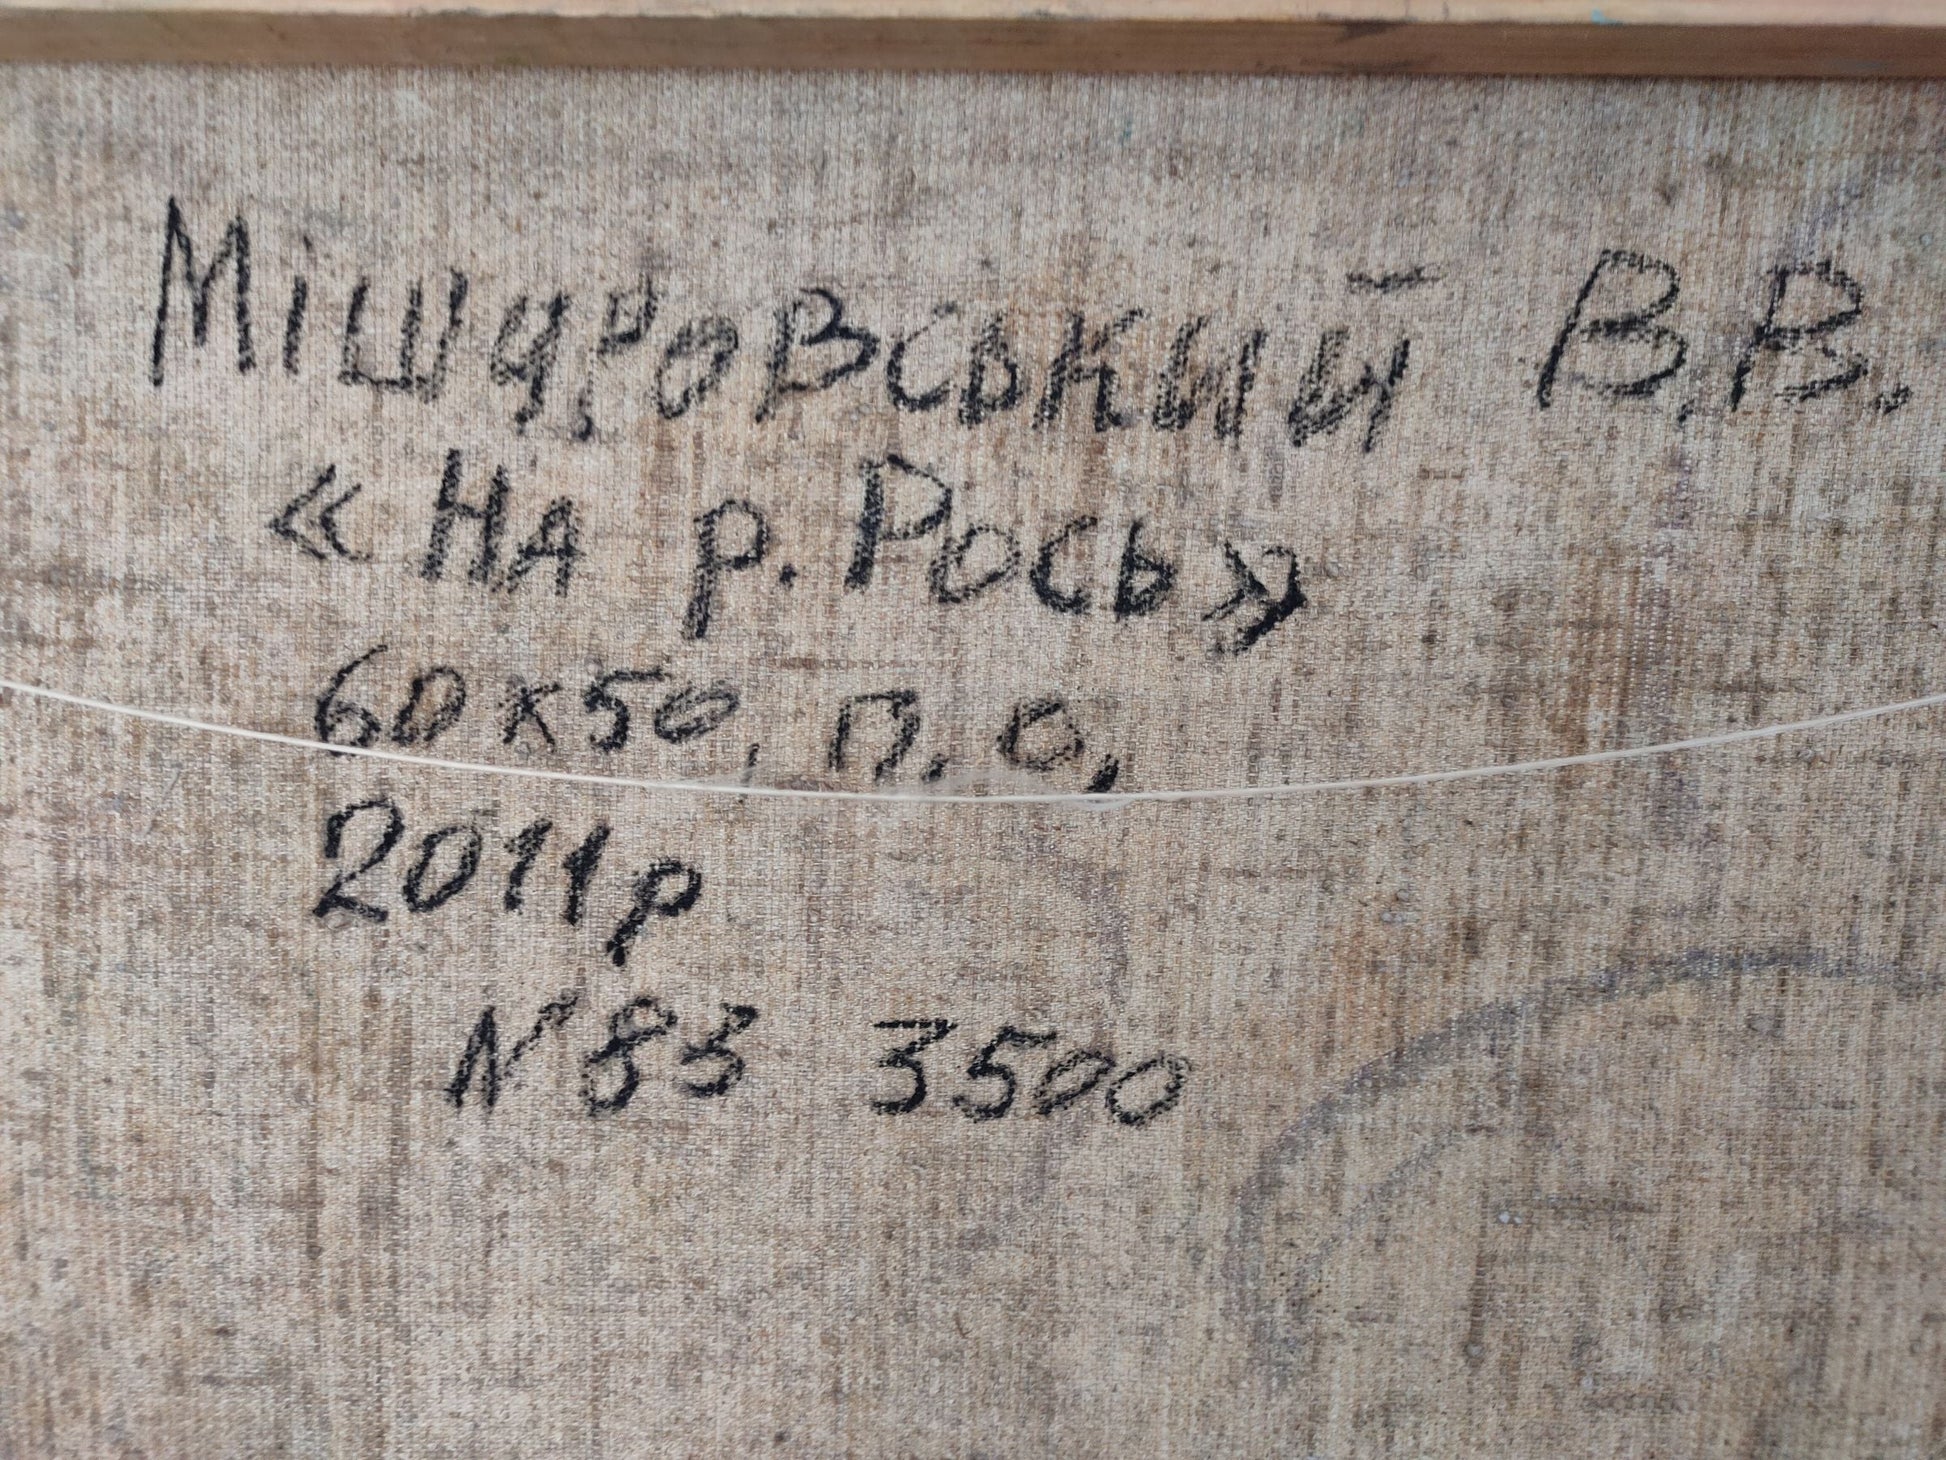 Мішуровський В.В.
«На р. Рось»
60х50, п. о,
2011р
N83 3500